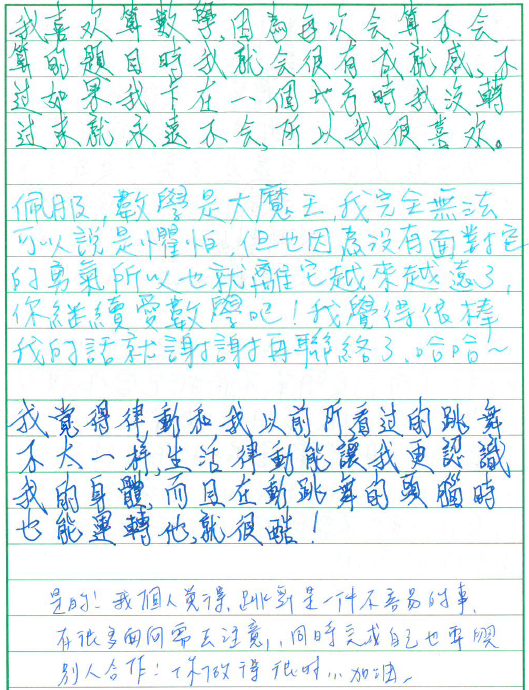 我喜欢算數學,因為每次会算不会
算的題目時我就会很有成就感,不
过如果我卡在一個地方時我沒轉
过来就永遠不会,所以我很喜欢。
佩服,數學是大魔王,我完全無法
可以說是懼怕,但也因為沒有面對它
的勇氣所以也就離它越來越遠了,
你繼續愛數學吧!我覺得很棒
我的話就謝謝再聯絡了、哈哈~
我覚得律動和我以前所看过的跳舞
不太一样,生活律動能讓我更認識
我的身體,而且在動跳舞的頭腦時
也能運轉他,就很酷!
是的!我個人覺得,跳舞是一件不容易的事,
在很多面向需去注意,同時完成自己也要跟
別人合作!你做得很好…加油~